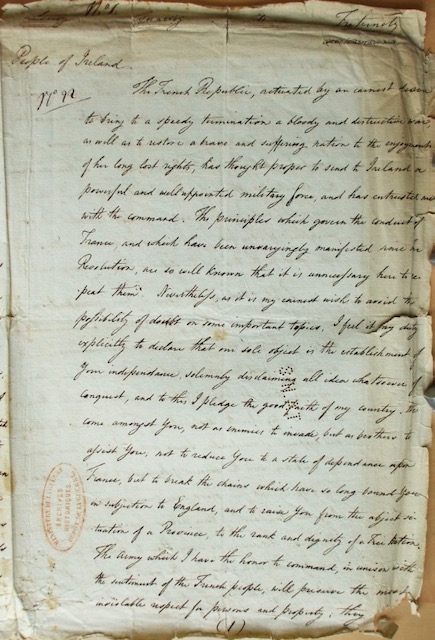 No. 1
Fraternity
People of Ireland.
The French Republic, actuated by an earnest desire
to bring to a speedy termination a bloody and destructive war,
as well as to restore a brave and suffering nation to the enjoyment
of her long lost rights, has thought proper to send to Ireland a
powerful and well appointed military force, and has entrusted me
with the command. The principles which govern the conduct of
France, and which have been unvaryingly manifested since her
Revolution, are so well known that it is unnecessary here to re-
peat them. Nevertheless, as it is my earnest wish to avoid the
possibility of doubt on some important topics, I feel it my duty
explicitly to declare that our sole object is the establishment of
Your independance, solemnly disclaiming all idea whatsoever of
conquest, and to this I pledge the good faith of my country. We
come amongst You, not as enemies to invade, but as brothers to
assist You, not to reduce You to a state of dependance upon
France, but to break the chains which have so long bound You
in subjection to England, and to raise You from the abject si-
tuation of a Province, to the rank and dignity of a Free Nation.
The Army which I have the honor to command, in unison with
the sentiment of the French people, will preserve the most
inviolable respect for persons and property; they
(1)